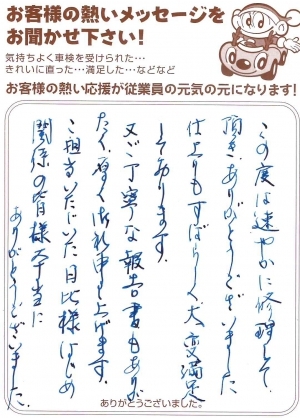 お客様の熱いメッセージを
お聞かせ下さい!
気持ちよく車検を受けられた…
きれいに直った…満足した…などなど
お客様の熱い応援が従業員の元気の元になります!
この度は速やかに修理して
頂き、ありがとうございました
仕上りもすばらしく大変満足
しております。
又、ご丁寧な報告書もありが
たく厚く御礼申し上げます。
ご担当いただいた日比様はじめ
関係の皆様本当に
ありがとうございました。
ありがとうございました。